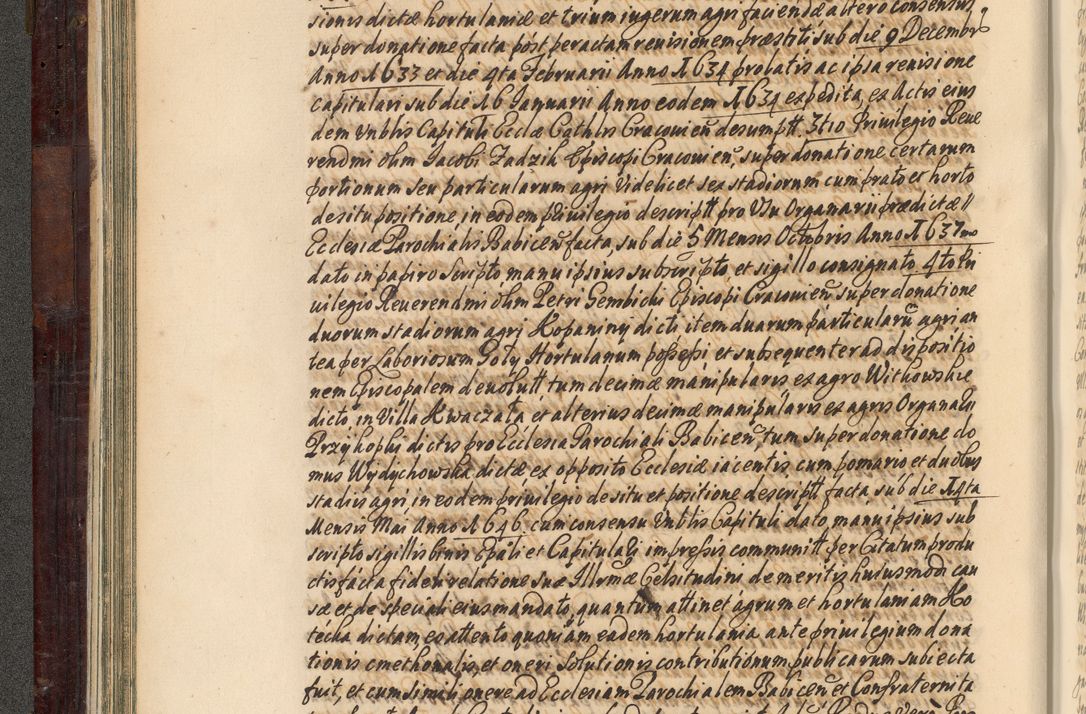 sionis dictæ hortulaniæ et trium iugerum agri faciendæ altero consensus
super donatione facta post peractam reuisionem præstiti sub die 9 Decembrs
Anno 1633 et die 4ta Februarii Anno 1634 prolatis ac ipsa reuisione
capitulari sub die 16 Januarii Anno eodem 1634 expedita, ex Actis eius
dem Vnblis Capituli Ecclæ Cathlis Cracouien desumptt. 3tio Priuilegio Reue
rendmi olim Jacobi Zadzik Episcopi Cracouien, super donatione certarum
portionum seu particularum agri videlicet sex stadiorum cum prato et horto
de situ positione, in eodem priuilegio descriptt pro Vsu Organarii prædictæ
Ecclesiæ Parochialis Babicen facta, sub die 5 Mensis Octobris Anno 1637mo
dato in papiro scripto, manu ipsius subscripto, et sigillo consignato, 4to Pri
uilegio Reuerendmi olim Petri Gembicki Episcopi Cracouien super donatione
duorum stadiorum agri Kopaniny dicti item duarum particularu agri an
tea per Laboriosum Goły Hortulanum possessi et subsequenter ad dispositio
nem Episcopalem deuolutt, tum decimæ manipularis ex agro Witkowskie
dicto, in Villa Kwaczała, et alterius decimæ manipularis ex agris Organarii
Przykopki dictis pro Ecclesia Parochiali Babicen, tum super donatione do
mus Wydychowska dictæ, ex opposito Ecclesiæ iacentis cum pomario et duobus
stadiis agri, in eodem priuilegio de situ et positione descriptt facta sub die 14ta
Mensis Mai Anno 1646, cum consensu Vnblis Capituli dato, manu ipsius sub
scripto sigillis binis Epali et Capitulari impressis communitt per Citatum produ
ctis facta fideli relatione suæ Illrmæ Celsitudini de meritis huiusmodi cau
sæ et de speciali eius mandato, quantum attinet agrum et hortulaniam Ko
tecka dictam, ex attento quoniam eadem hortulania ante priuilegium dona
tionis cmethonalis, et oneri solutionis contributionum publicarum subiecta
fuit, et cum simili onere ad Ecclesiam Parochialem Babicen et Confraternita